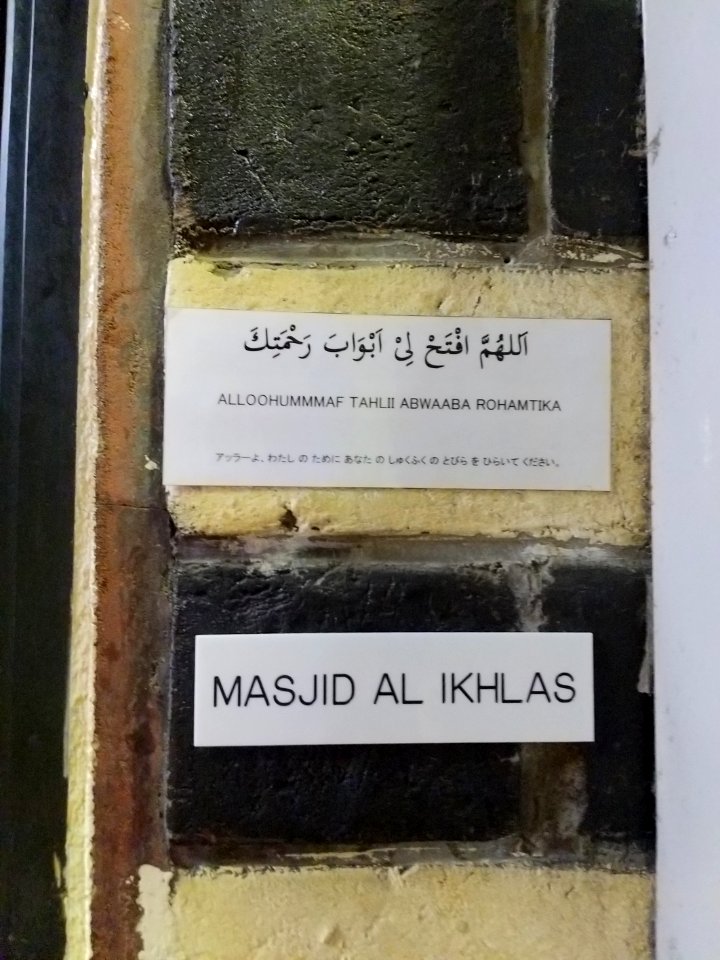 اَللهُمَّ افْتَحْ لِيْ اَبْوَابَ رَحْمَتِكَ
ALLOOHUMMMAF TAHLII ABWAABA ROHAMTIKA
アッラーよ、わたし の ために あなた の しゅくふく の とびら を ひらいて ください。
MASJID AL IKHLAS